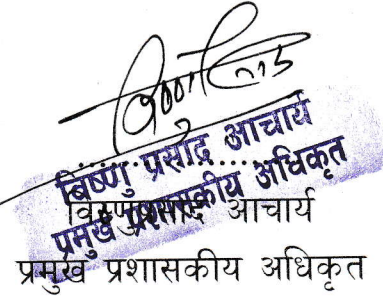 बिष्णु प्रसाद आचार्य
प्रमुख प्रशासकीय अधिकृत
विष्णुप्रसाद आचार्य
प्रमुख प्रशासकीय अधिकृत